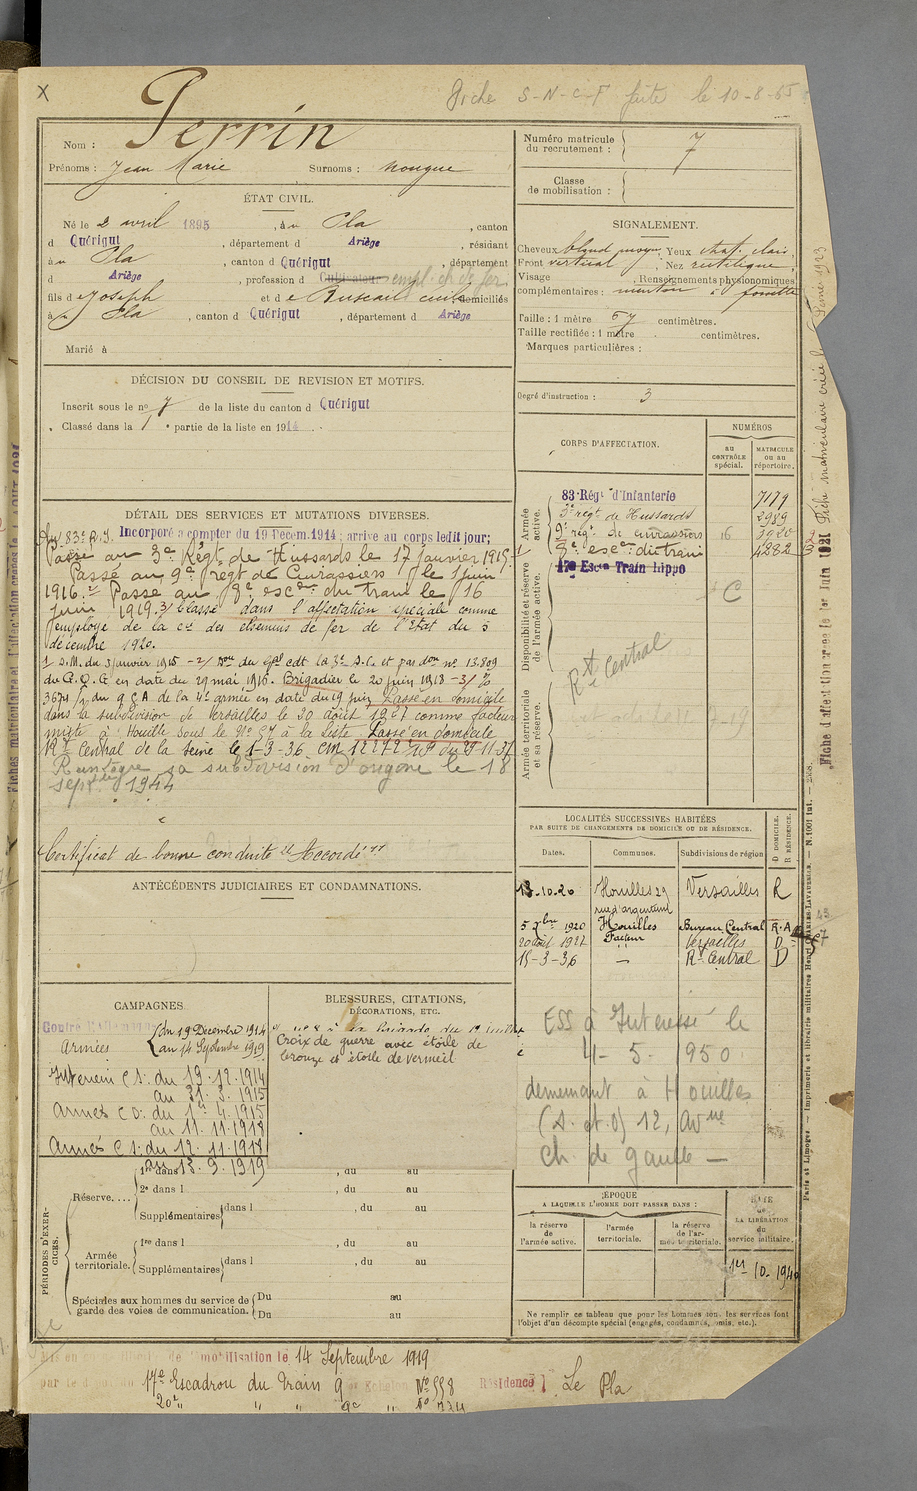 X
Fiche S-N-C-F faite le 10-8-65
Nom : Perrin
Prénoms : Jean Marie Surnoms : nougue
Numéro matricule du recrutement : 7
Classe de mobilisation :
ÉTAT CIVIL.
Né le 2 avril 1895, à Pla, canton
d Quérigut, département d Ariège, résidant
à Pla, canton d Quérigut, département
d Ariège, profession d Cultivateur empl. ch. de fer
fils de Joseph et de domiciliés
à Pla, canton d Quérigut, département d Ariège
Marié à
SIGNALEMENT.
Cheveux blond moyen, Yeux chat. clair,
Front vertical, Nez rectiligne,
Visage , Renseignements physionomiques
complémentaires : menton à fossette
Taille : 1 mètre 67 centimètres.
Taille rectifiée : 1 mètre centimètres.
Marques particulières :
Degré d'instruction : 3
DÉCISION DU CONSEIL DE REVISION ET MOTIFS.
Inscrit sous le no 7 de la liste du canton d Quérigut
Classé dans la 1 e partie de la liste en 1914
CORPS D'AFFECTATION.
NUMÉROS
AU CONTRÔLE spécial.
MATRICULE ou au répertoire.
Armée active.
83e Régt d'Infanterie 7179
3e régt de Hussards 2989
9e régt de cuirassiers 16 3920
8e escon du train 4282
17e Escon Train hippo
Disponibilité et réserve de l'armée active.
C
Rt Central
Armée territoriale et sa réserve.
DÉTAIL DES SERVICES ET MUTATIONS DIVERSES.
Au 83e R.I. Incorporé à compter du 19 Décem.1914; arrivé au corps ledit jour;
Passé au 3e Régt de Hussards le 17 janvier 1915.
Passé au 9e régt de Cuirassiers le 1 juin
1916. 2/ Passé au 8e escon du train le 16
juin 1919. 3/ Classé dans l'affectation spéciale comme
employé de la cie des chemins de fer de l'Etat du 5
décembre 1920.
1/ D.M. du 3 janvier 1915 - 2/ du Gal cdt la 3e D.C. et par don no 13.809
du G.Q.G en date du 29 mai 1916. Brigadier le 20 juin 1918 - 3/
3674 du Q G A de la 4e armée en date du 19 juin Passé en domicile
dans la subdivision de Versailles le 20 août 1927 comme facteur
mixte à Houilles sous le No 57 à la liste Passé en domicile
Rt Central de la Seine le 1-3-36
Réintègre sa subdivision d'origine le 18
sept. 1944
Certificat de bonne conduite "Accordé"
ANTÉCÉDENTS JUDICIAIRES ET CONDAMNATIONS.
LOCALITÉS SUCCESSIVES HABITÉES
PAR SUITE DE CHANGEMENTS DE DOMICILE OU DE RÉSIDENCE.
Dates. Communes. Subdivisions de région
D DOMICILE. R RÉSIDENCE.
13-10-20 Houilles 29 rue d'argenteuil Versailles R
5 Xbre 1920 Houilles Bureau Central R.A
20 août 1927 Facteur Versailles D
15-3-36 — Rt Central D
ESS à Intéressé le
4-5-1950
demeurant à Houilles
(S. et O) 12, Avnue
Ch. de Gaulle —
CAMPAGNES.
Contre l'Allemagne
Armées
du 19 Décembre 1914
au 14 Septembre 1919
Intérieur C S: du 19.12.1914
au 31.3.1915
Armées C D: du 1er 4.1915
au 11.11.1918
Armées C S: du 12.11.1918
au 13.9.1919
BLESSURES, CITATIONS, DÉCORATIONS, ETC.
Croix de guerre avec étoile de
bronze et étoile de vermeil
PÉRIODES D'EXERCICES.
Réserve....
1re dans l , du au
2e dans l , du au
Supplémentaires dans l , du au
Armée territoriale.
1re dans l , du au
Supplémentaires dans l , du au
Spéciales aux hommes du service de garde des voies de communication.
Du au
Du au
ÉPOQUE
A LAQUELLE L'HOMME DOIT PASSER DANS :
la réserve de l'armée active.
l'armée territoriale.
la réserve de l'armée territoriale.
DATE de LA LIBÉRATION du service militaire.
1er-10-1940
Ne remplir ce tableau que pour les hommes dont les services font l'objet d'un décompte spécial (engagés, condamnés, omis, etc.).
Mis en de mobilisation le 14 Septembre 1919
par le dépôt du 17e Escadron du Train 9e Echelon No 558 Résidence Le Pla
20e " " " 9e " No 734
Paris et Limoges. — Imprimerie et librairie militaires Henri CHARLES-LAVAUZELLE. — N. 1001 int.